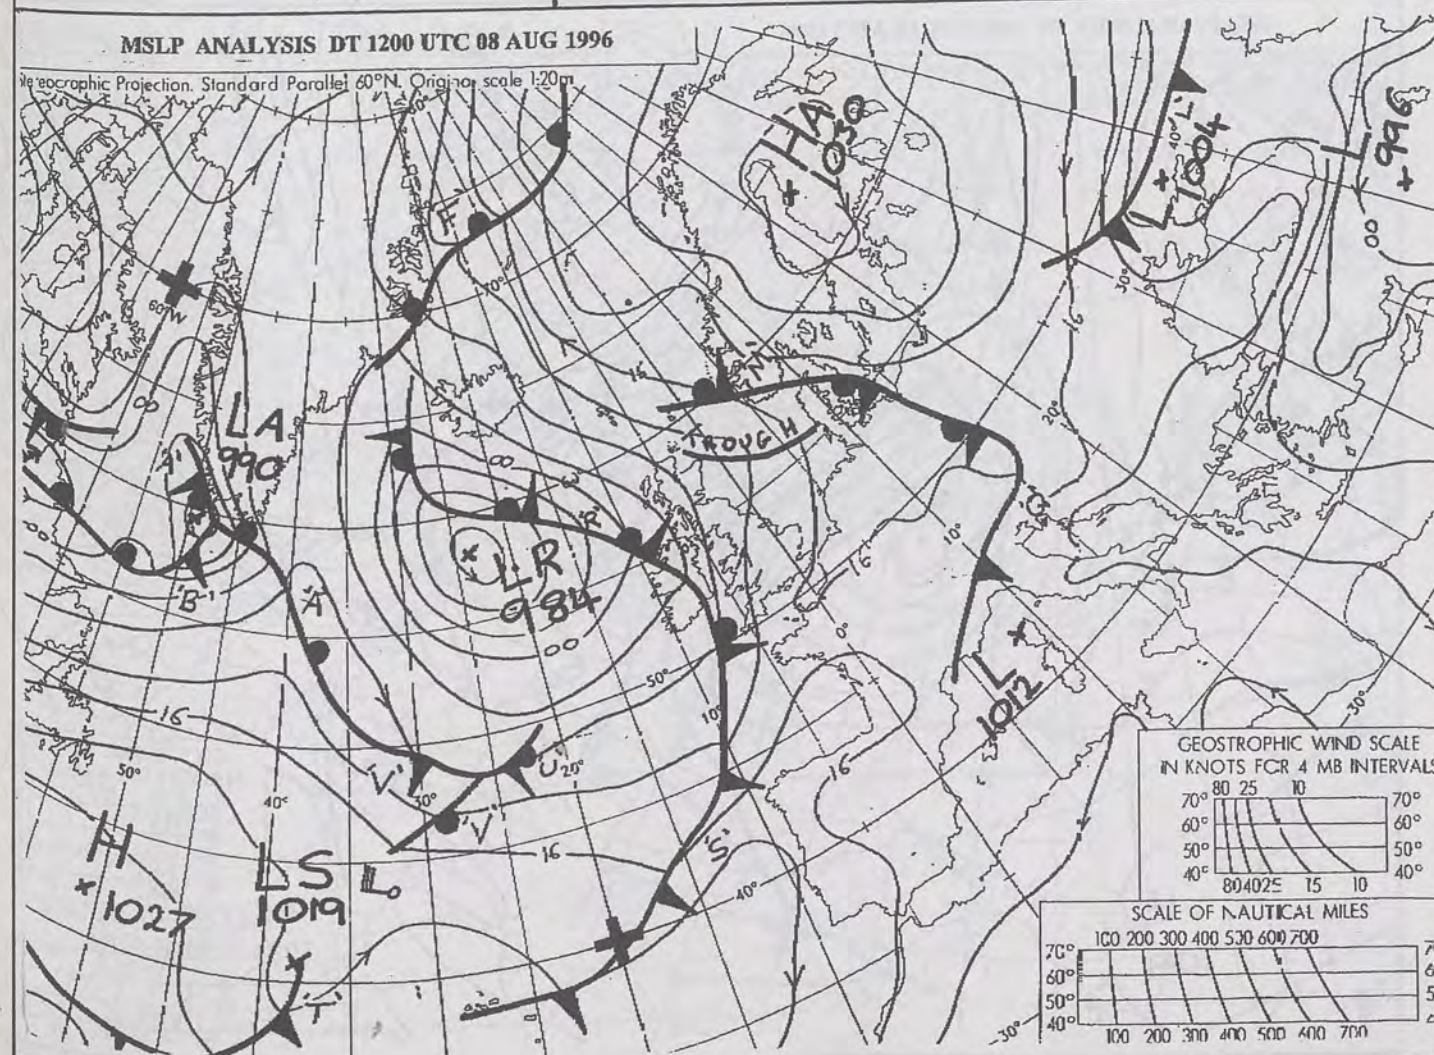 MSLP ANALYSIS DT 1200 UTC 08 AUG 1996
Projection. Standard Parallel 60°N. Original scale 1:20m
HA
1030
L
1004
L
996
00
40°
'L'
'F'
80°
70°
60°W
30°
16
20°
00
LA
990
'A'
'B'
'A'
00
16
'N'
TROUGH
'R'
LR
984
00
'Q'
10°
16
0°
L
1012
50°
10°
16
50°
40°
30°
'V'
'V'
'U'
20°
16
'S'
40°
16
H
1027
LS
1019
'T'
30°
30°
30°
GEOSTROPHIC WIND SCALE
IN KNOTS FOR 4 MB INTERVALS
80 25 10
70° 70°
60° 60°
50° 50°
40° 40°
80 40 25 15 10
SCALE OF NAUTICAL MILES
100 200 300 400 500 600 700
70°
60°
50°
40°
100 200 300 400 500 600 700